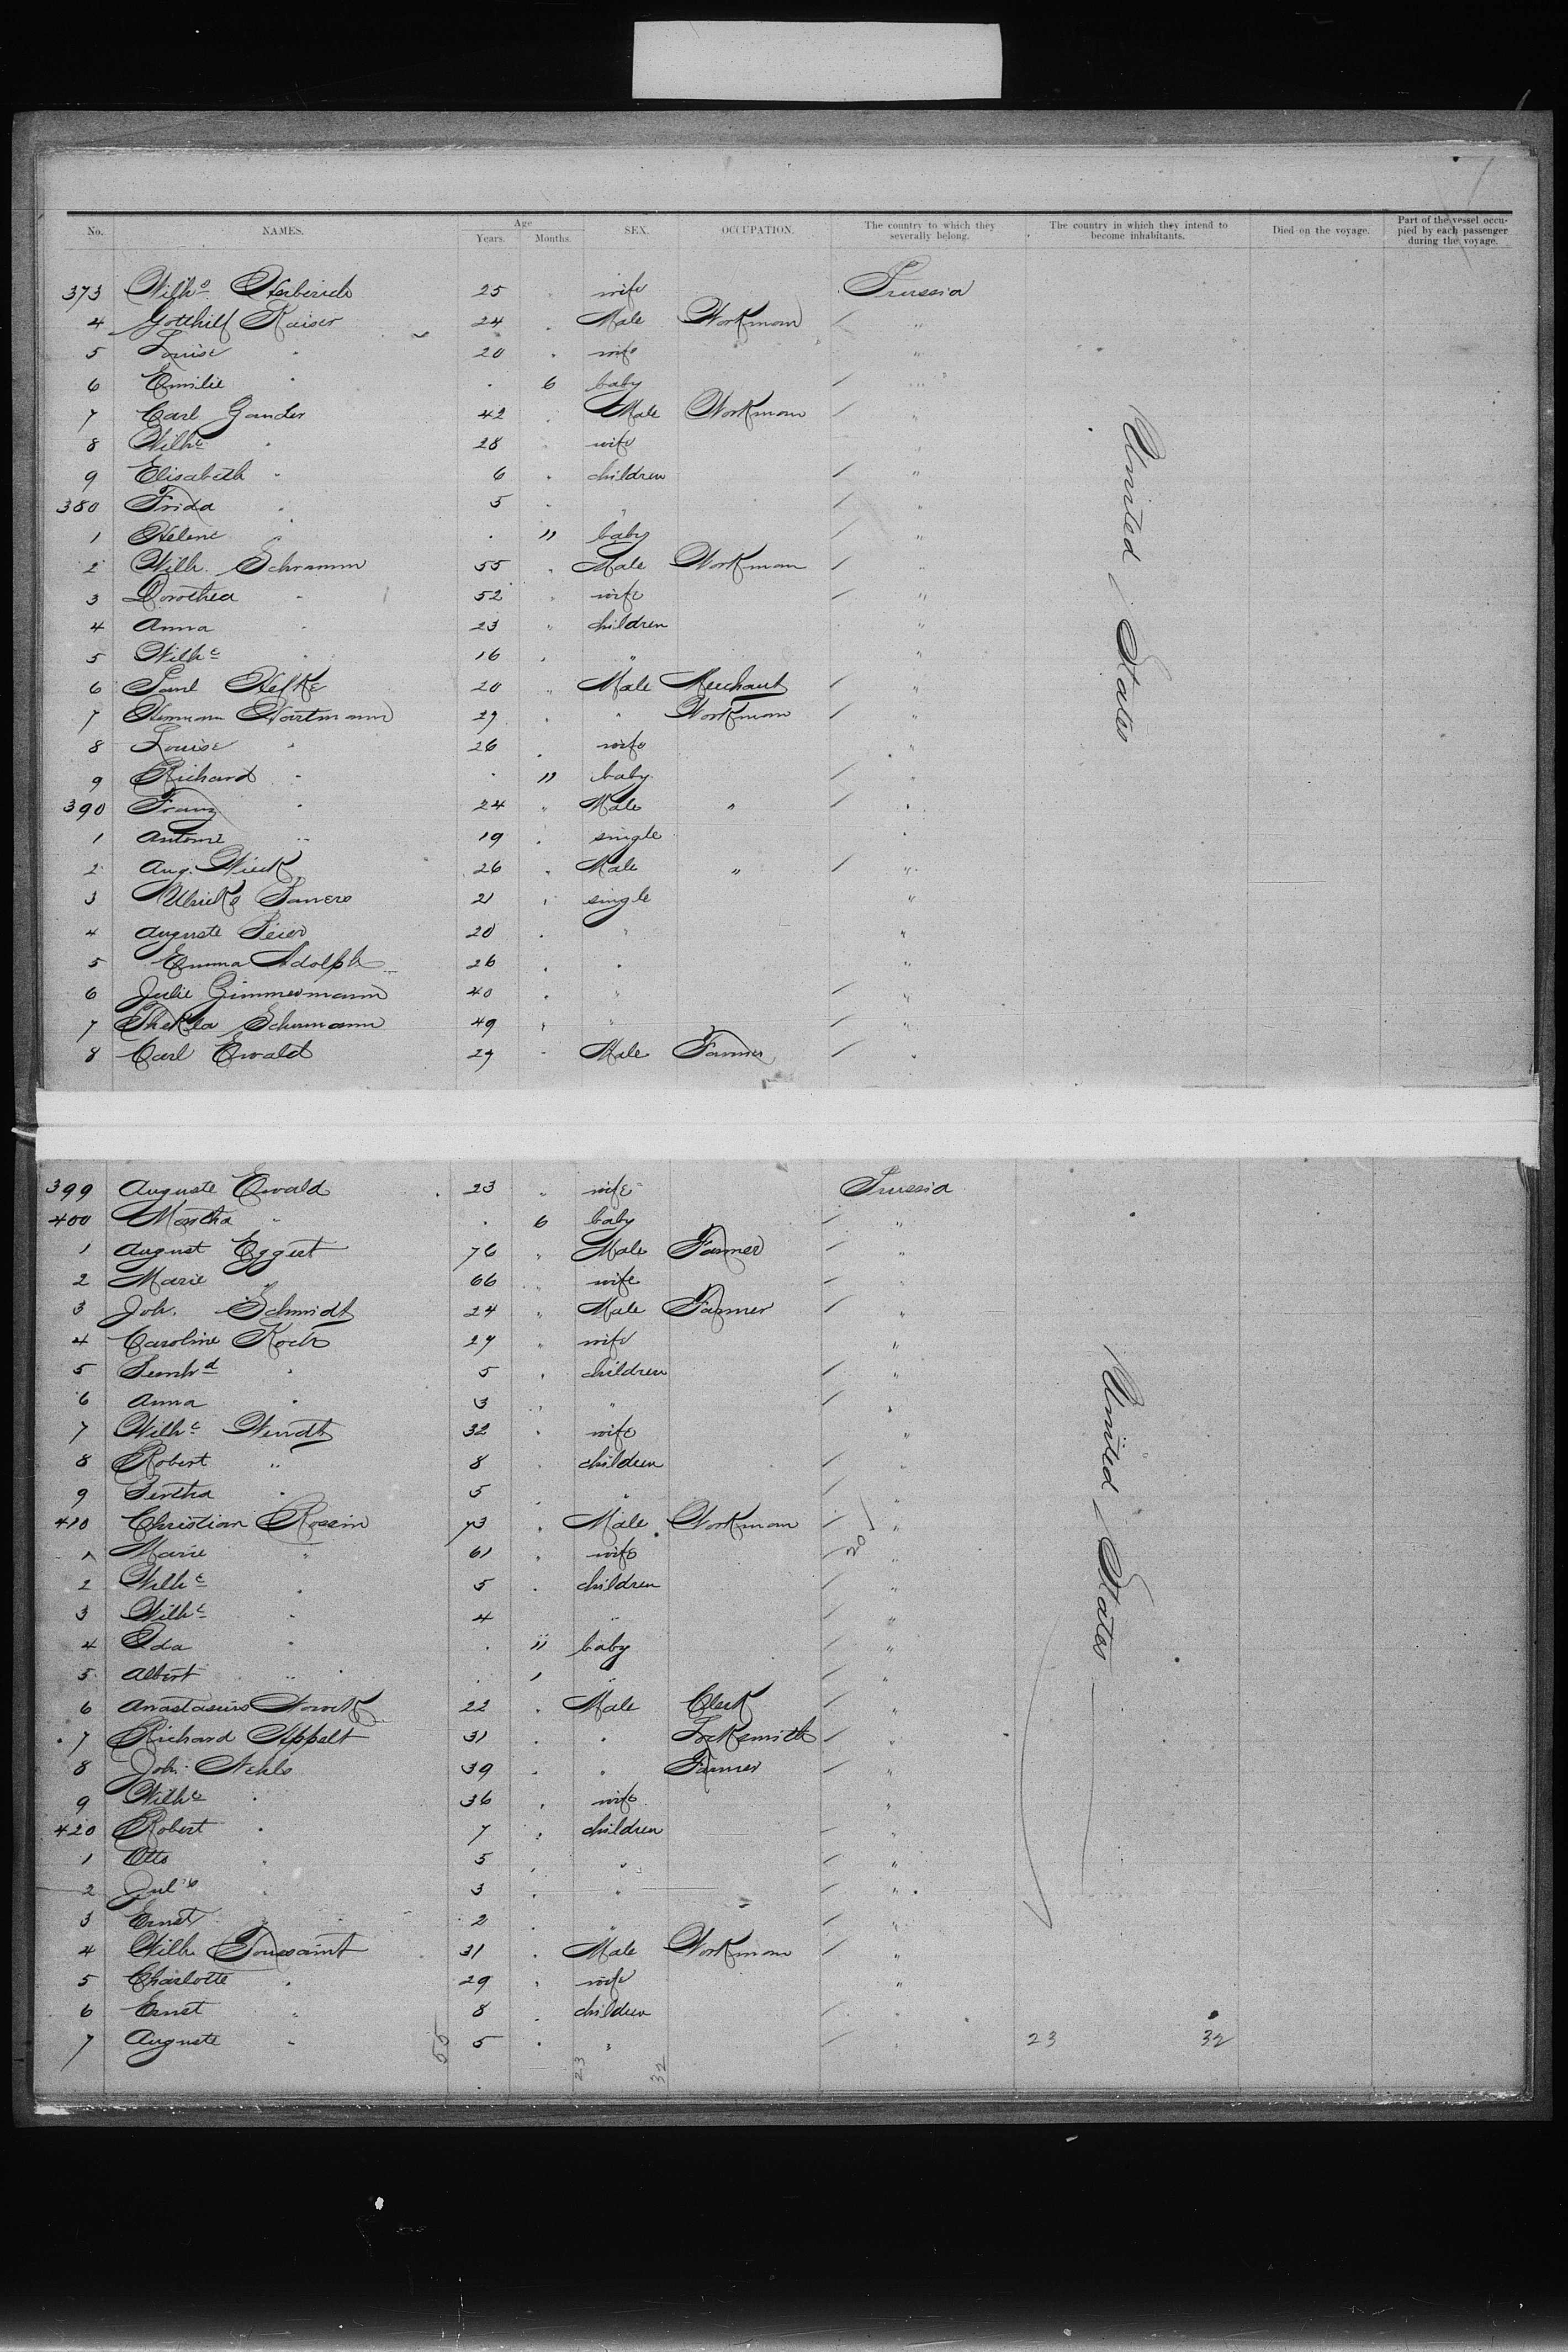 No. NAMES. Age Years. Months. SEX. OCCUPATION. The country to which they severally belong. The country in which they intend to become inhabitants. Died on the voyage. Part of the vessel occupied by each passenger during the voyage.
373 Wilhe 25 wife Prussia
4 Gotthilf Kaiser 24 . Male Workman / "
5 Louise " 20 . wife "
6 Emilie " . 6 baby / "
7 Carl Gander 42 . Male Workman / "
8 Wilhe " 28 wife "
9 Elisabeth " 6 . children / "
380 Frida " 5 . " / "
1 Helene . 11 baby / "
2 Wilh. Schramm 55 . Male Workman / "
3 Dorothea " 52 . wife / "
4 Anna " 23 " children "
5 Wilhe " 16 . " "
6 Paul Helke 20 " Male Merchant / "
7 Hermann Hartmann 27 . " Workman / "
8 Louise " 26 . wife "
9 Richard " . 11 baby / "
390 Franz " 24 " Male " / "
1 Antonie " 19 . single "
2 Aug. Wieck 26 . Male " / "
3 Ulricke 21 . single "
4 Auguste Beier 20 . " "
5 Emma Adolph 26 . " "
6 Julie Zimmermann 40 . " / "
7 Thekla Schumann 49 . " / "
8 Carl Ewald 27 . Male Farmer / "
United States
399 Auguste Ewald 23 " wife Prussia
400 Martha " . 6 baby / "
1 August Eggert 76 . Male Farmer / "
2 Marie " 66 . wife / "
3 Joh. Schmidt 24 " Male Farmer / "
4 Caroline Koch 27 " wife "
5 " 5 . children / "
6 Anna " 3 . " / "
7 Wilhe Wendt 32 . wife "
8 Robert " 8 . children / "
9 Bertha " 5 . " / "
410 Christian Rossin 73 . Male Workman / "
1 Marie " 61 . wife / 20 "
2 Wilhe " 5 . children / "
3 Wilhe " 4 " / "
4 Ida " . 11 baby / "
5 Albert " . 1 " / "
6 Anastasius Nowak 22 . Male Clerk / "
7 Richard Appelt 31 . " Locksmith / "
8 Joh. 39 . " Farmer / "
9 Wilhe " 36 . wife "
420 Robert " 7 . children / "
1 Otto " 5 . " / "
2 " 3 . " / "
3 Ernst " 2 . " / "
4 Wilh. Toussaint 31 . Male Workman / "
5 Charlotte " 29 . wife "
6 Ernst " 8 . children / "
7 Auguste " 5 . " / " 23 32
55 23 32
United States